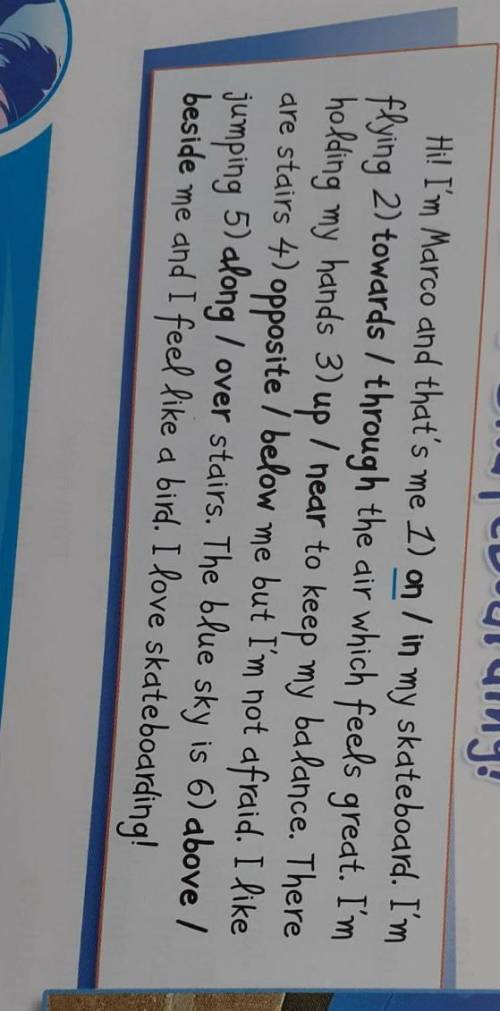 Hi! I'm Marco and that's me 1) on / in my skateboard. I'm
flying 2) towards / through the air which feels great. I'm
holding my hands 3) up / near to keep my balance. There
are stairs 4) opposite / below me but I'm not afraid. I like
jumping 5) along / over stairs. The blue sky is 6) above /
beside me and I feel like a bird. I love skateboarding!